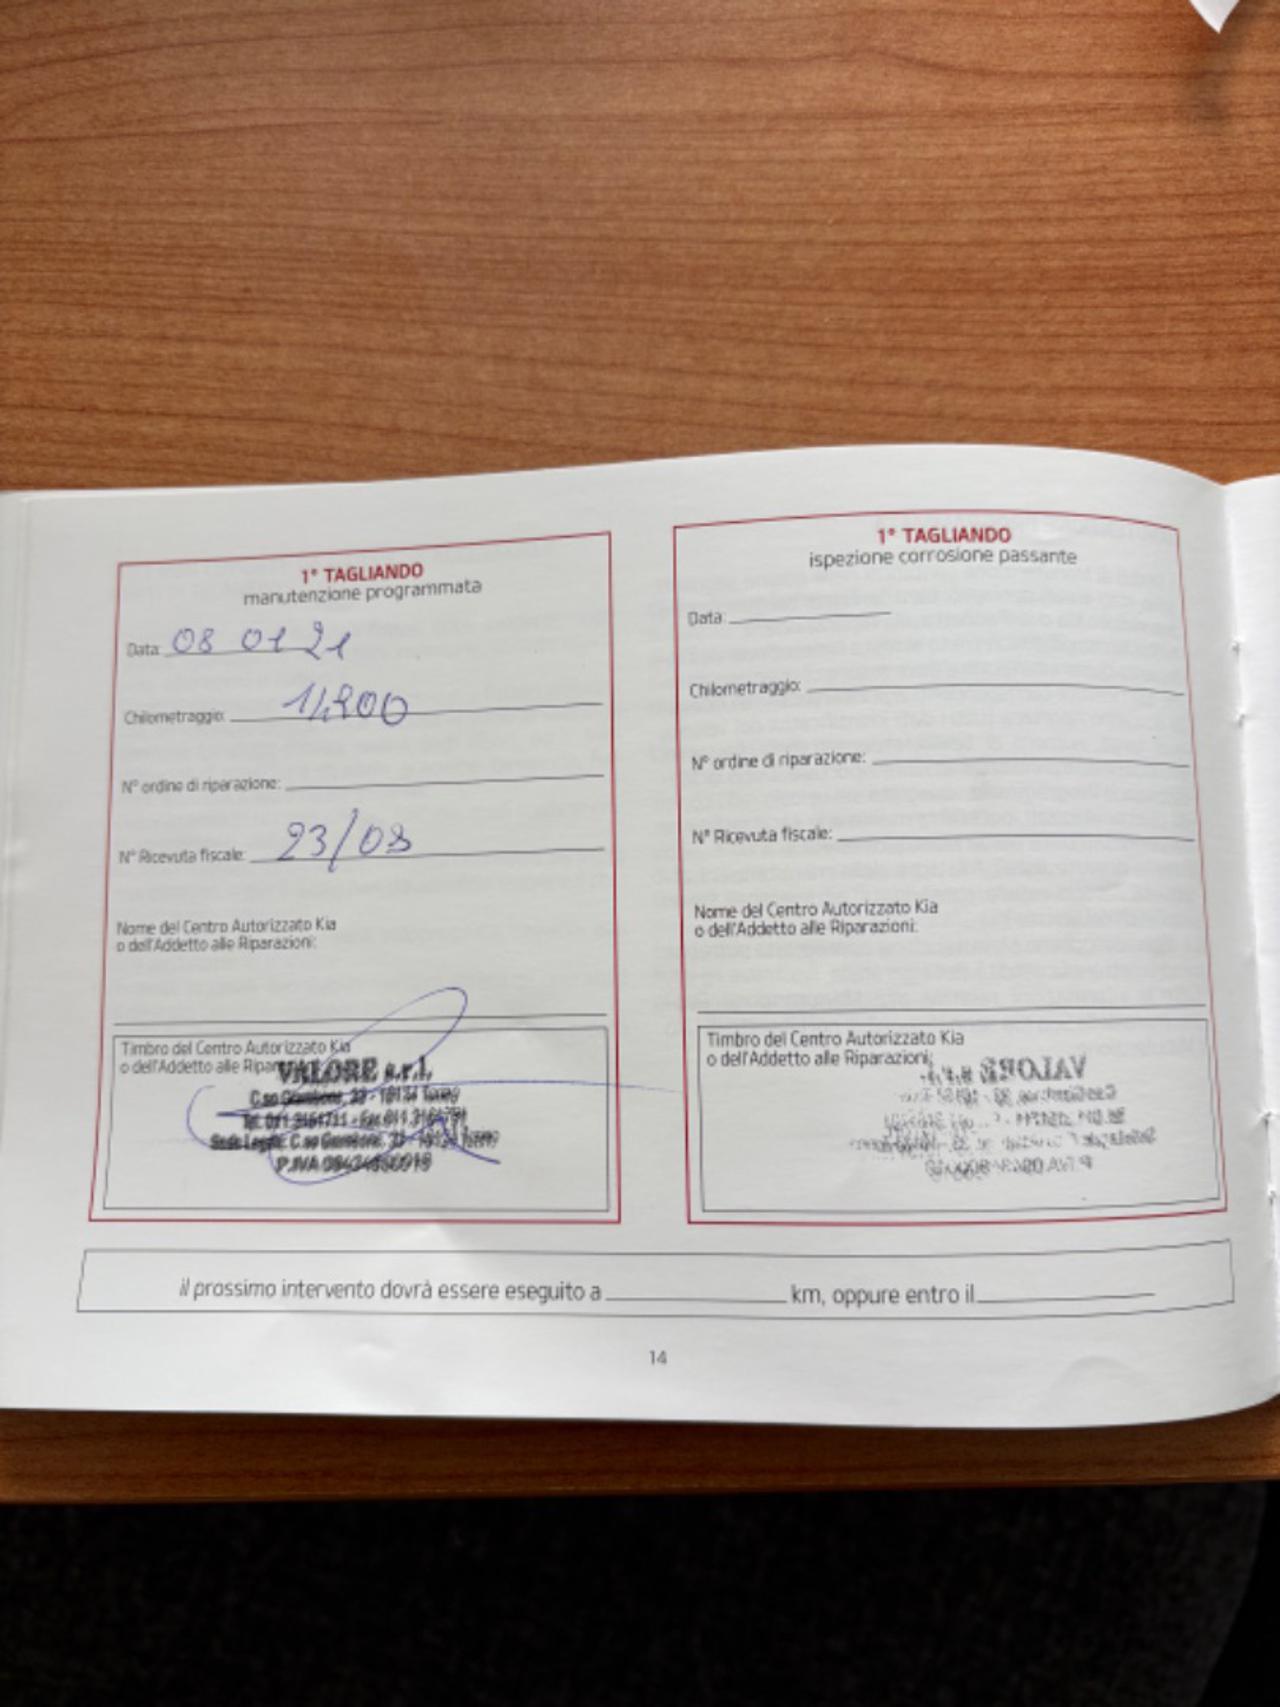 1° TAGLIANDO
manutenzione programmata
Data: 08 01 21
Chilometraggio:
N° ordine di riparazione:
N° Ricevuta fiscale: 23/08
Nome del Centro Autorizzato Kia
o dell'Addetto alle Riparazioni:
Timbro del Centro Autorizzato Kia
o dell'Addetto alle
VALORE s.r.l.
C.so 33 - 10134 Torino
Tel. 011
Sede Legale: C.so
P.IVA
1° TAGLIANDO
ispezione corrosione passante
Data:
Chilometraggio:
N° ordine di riparazione:
N° Ricevuta fiscale:
Nome del Centro Autorizzato Kia
o dell'Addetto alle Riparazioni:
Timbro del Centro Autorizzato Kia
o dell'Addetto alle Riparazioni:
VALORE s.r.l.
il prossimo intervento dovrà essere eseguito a km, oppure entro il
14